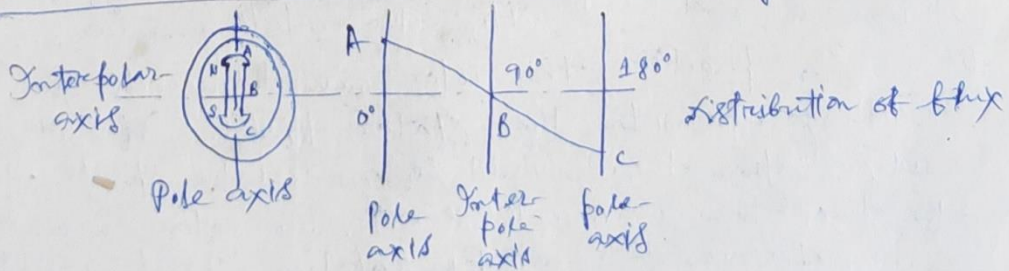 Interpolar
axis
N
A
B
S
C
Pole axis
A
0°
90°
B
180°
C
Pole
axis
Inter-
pole
axis
pole-
axis
Distribution of flux